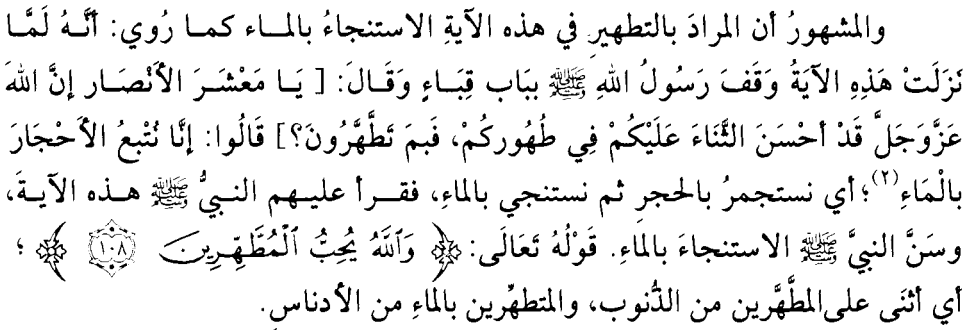 والمشهورُ أن المرادَ بالتطهيرِ في هذه الآيةِ الاستنجاءُ بالمـاء كمـا رُوي: أنَّـهُ لَمَّـا
نَزَلَتْ هَذِهِ الآيَةُ وَقَفَ رَسُولُ اللهِ ﷺ ببَاب قِبَـاءٍ وَقَـالَ: [ يَـا مَعْشَـرَ الأَنْصَـار إنَّ اللهَ
عَزَّوَجَلَّ قَدْ أحْسَنَ الثَّنَاءَ عَلَيْكُمْ فِي طُهُوركُمْ، فَبمَ تَطَّهَّرُونَ؟] قَالُوا: إنَّا نُتْبعُ الأَحْجَارَ
بالْمَاءِ(٢)؛ أي نستجمرُ بالحجرِ ثم نستنجي بالماءِ، فقـرأ عليـهم النبيُّ ﷺ هـذه الآيـةَ،
وسَنَّ النبيَّ ﷺ الاستنجاءَ بالمَاءِ. قَوْلُهُ تَعَالَى: ﴿ وَٱللَّهُ يُحِبُّ ٱلْمُطَّهِّرِينَ ١٠٨ ﴾ ؛
أي أثنَى على المطَّهَّرين من الذُّنوب، والمتطهِّرين بالماءِ من الأدناسِ.